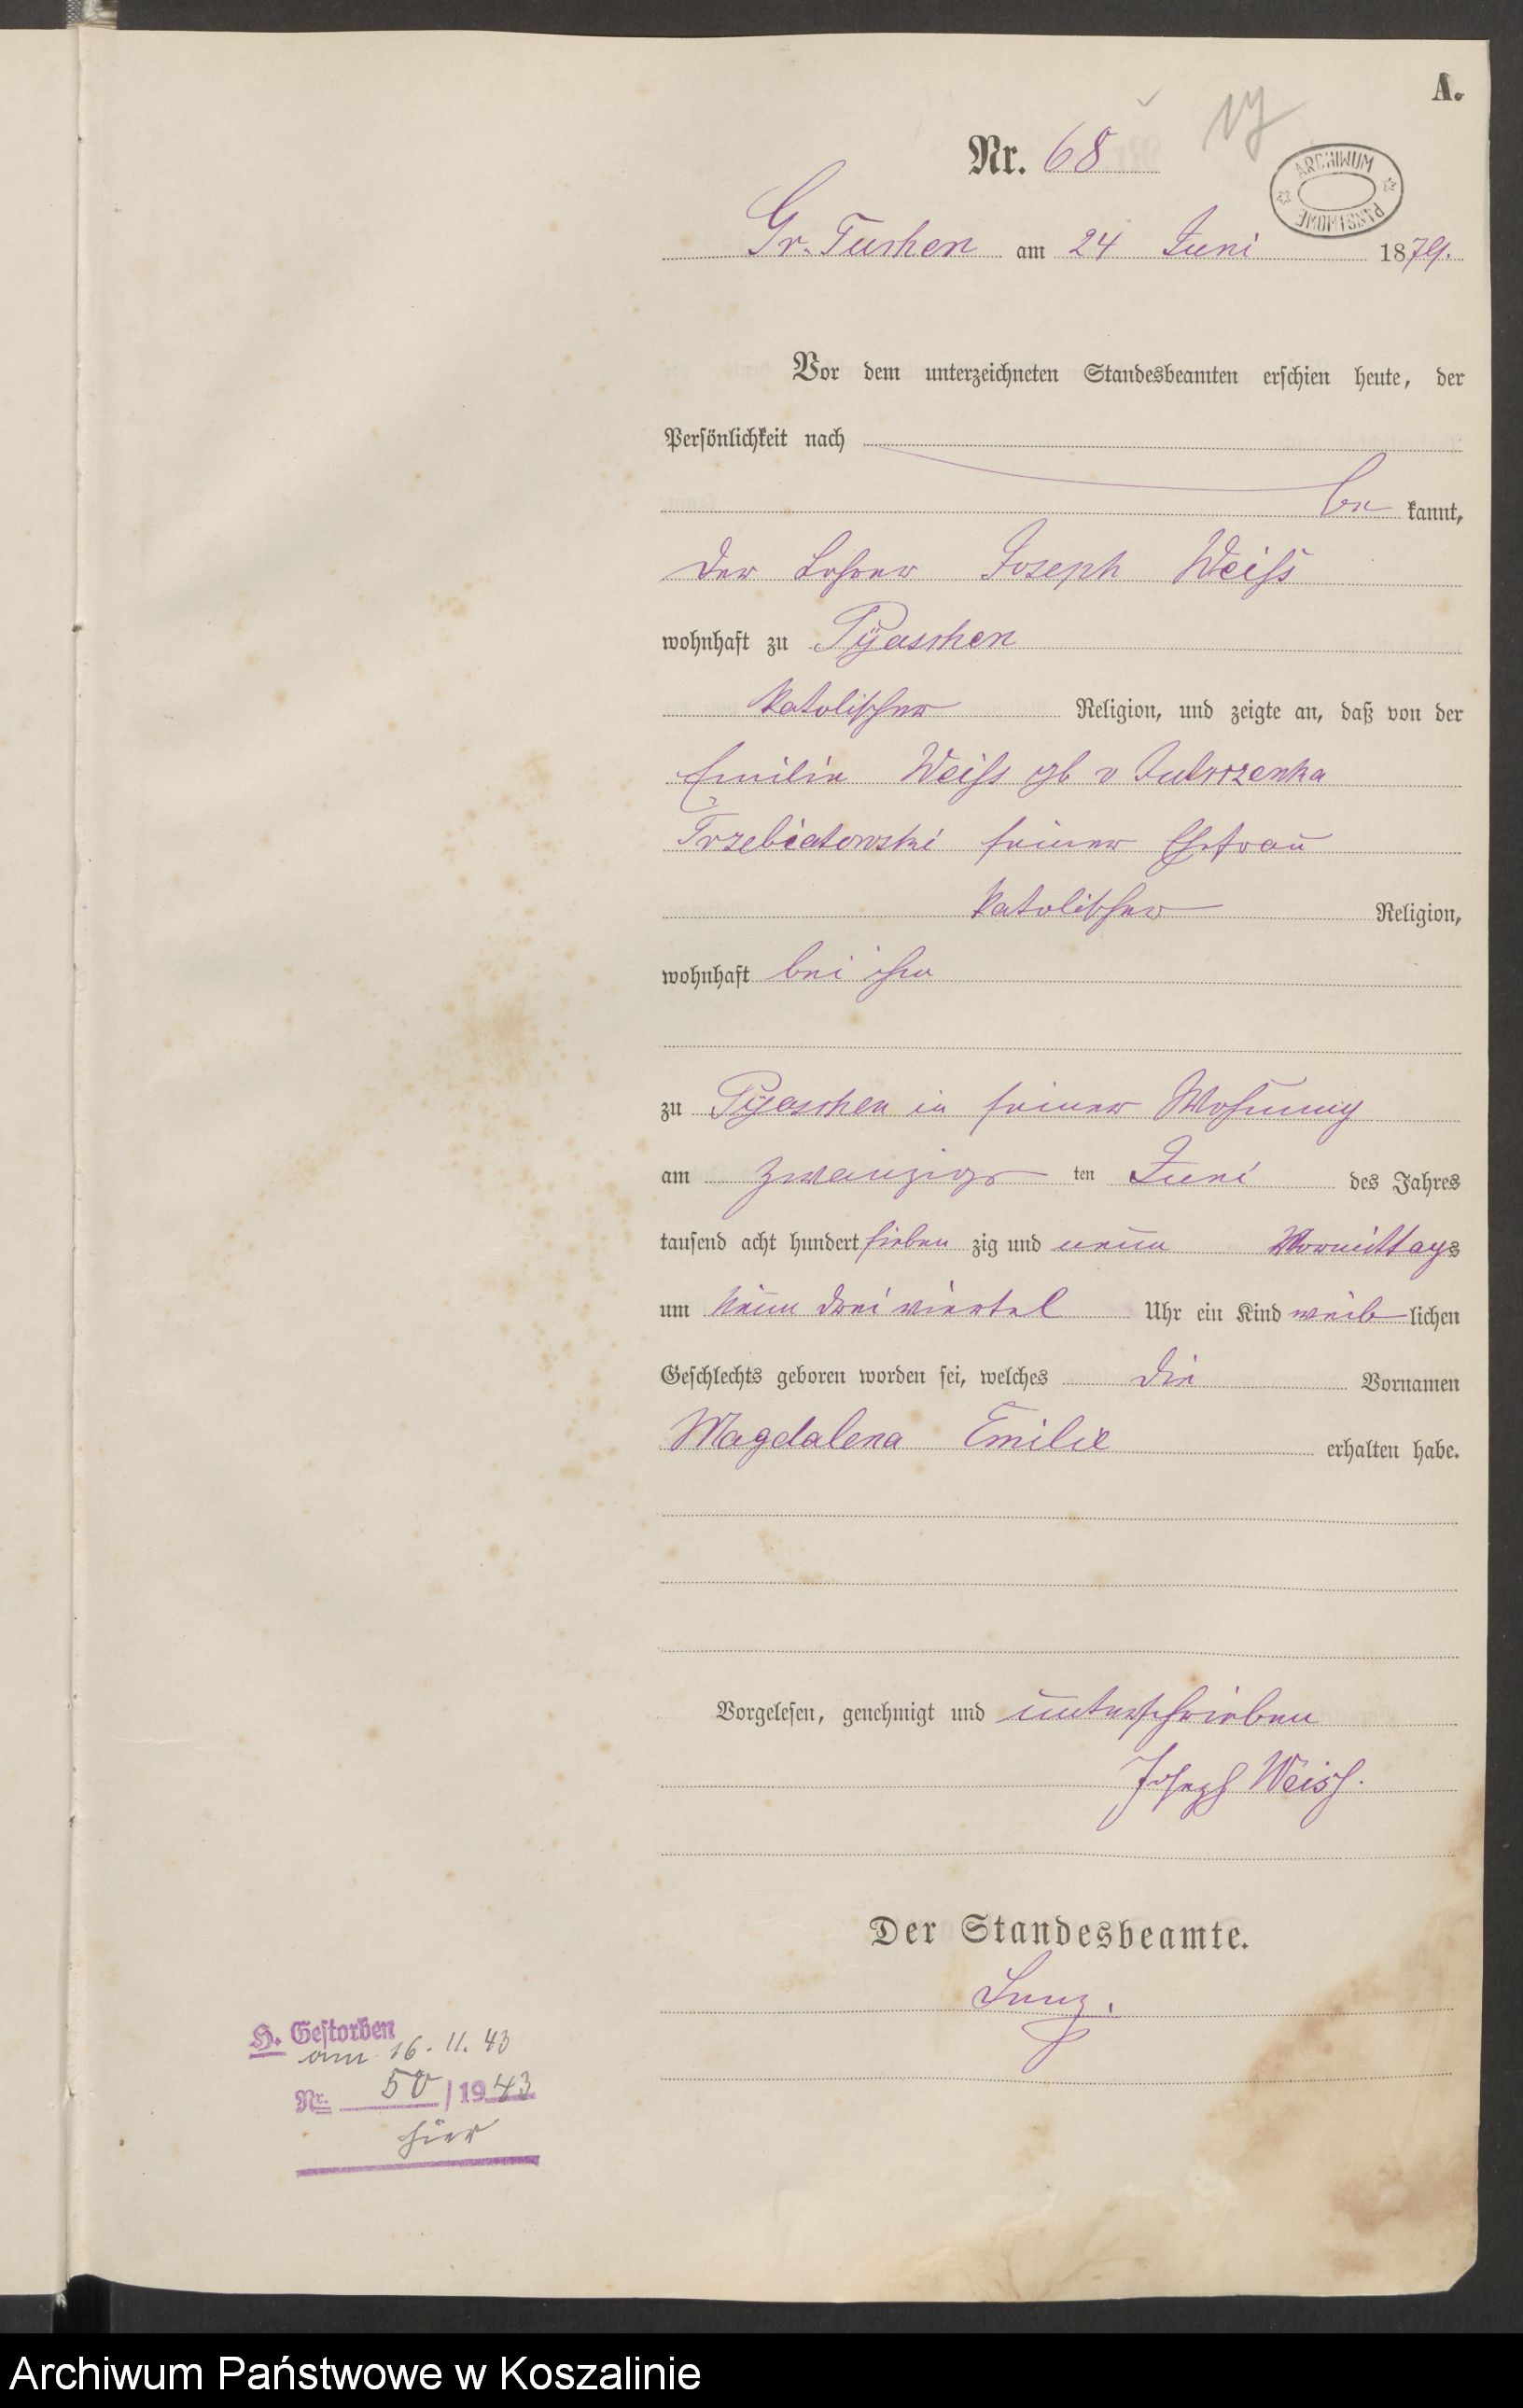 A.
Nr. 68
ARCHIWUM PAŃSTWOWE
Gr. Tuchen am 24 Juni 1879.
Vor dem unterzeichneten Standesbeamten erschien heute, der
Persönlichkeit nach
be kannt,
der Lehrer Joseph Weiss
wohnhaft zu Pyaschen
katolischer Religion, und zeigte an, daß von der
Emilie Weiss gb v Jutrzenka
Trzebiatowski seiner Ehefrau
katolischer Religion,
wohnhaft bei ihm
zu Pyaschen in seiner Wohnung
am zwanzigs ten Juni des Jahres
tausend acht hundert sieben zig und neun Vormittags
um neun drei viertel Uhr ein Kind weib lichen
Geschlechts geboren worden sei, welches die Vornamen
Magdalena Emilie erhalten habe.
Vorgelesen, genehmigt und unterschrieben
Joseph Weiss.
Der Standesbeamte.
H. Gestorben
am 16. 11. 43
Nr. 50 / 1943
hier
Archiwum Państwowe w Koszalinie